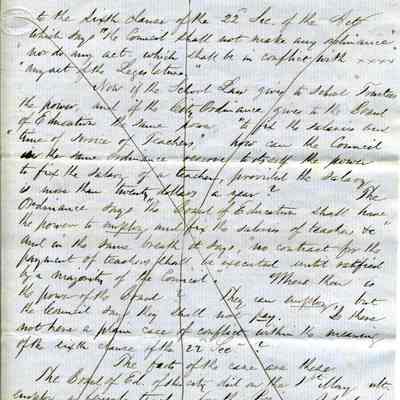 to the sixth clause of the 22d Sec. of the Act
which says "the Council shall not make any ordinance"
"nor do any act, which shall be in conflict with xxxx
"any act of the Legislature"
Now if the School Law gives to School Trustees
the power, and if the City Ordinance gives to the Board
of Education the same power, "to fix the salaries and
"time of service of Teachers," how can the Council
in the same ordinance reserve to itself the power
to fix the salary of a teacher, provided the salary
is more than twenty dollars a year? The
Ordinance says the "Board of Education shall have"
the power to employ and fix the salaries of teachers &c
and in the same breath it says, "no contract for the
payment of teachers shall be executed until ratified
by a majority of the Council." Where then is
the power of the Board? They can employ, but
the Council say they shall not pay. Is there
not here a plain case of conflict within the meaning
of the sixth clause of the 22 Sec"?
The facts of the case are these
The Board of Ed. of the city did on the 1st May ult.